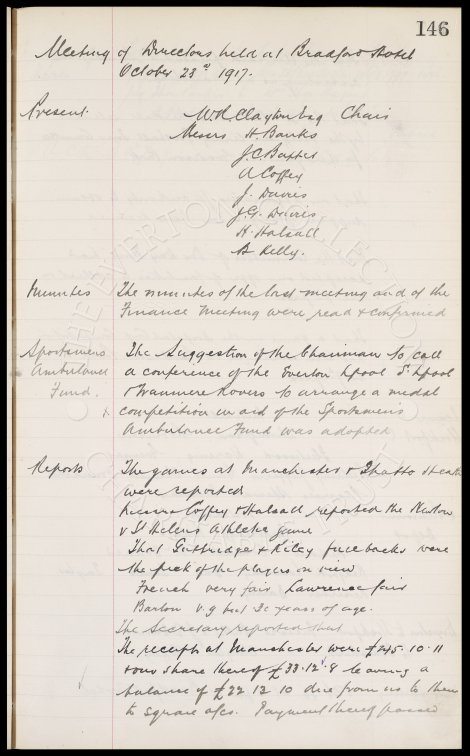 146
Meeting of Directors held at Bradford Hotel
October 23rd 1917.
Present. W.R. Clayton Esq Chair
Messrs H. Banks
J.C. Baxter
A Coffey
J. Davies
J.G. Davies
H. Halsall
B Kelly.
Minutes The minutes of the last meeting and of the
Finance Meeting were read & confirmed
Sportsmens The Suggestion of the Chairman to call
Ambulance a conference of the Everton Lpool Sth Lpool
Fund. & Tranmere Rovers to arrange a medal
x competition in aid of the Sportsmens
Ambulance Fund was adopted
Reports The games at Manchester & Thatto Heath
were reported
Messrs Coffey & Halsall reported the
v St Helens Athletic game
That Guttridge & Kiley full backs were
the pick of the players on view
French very fair Lawrence fair
Barton v.g but 20 years of age.
The Secretary reported that
The receipts at Manchester were £245.10.11
& our share thereof £33.12.8 leaving a
balance of £22 12 10 due from us to them
to square a/cs. Payment thereof passed
THE EVERTON COLLECTION